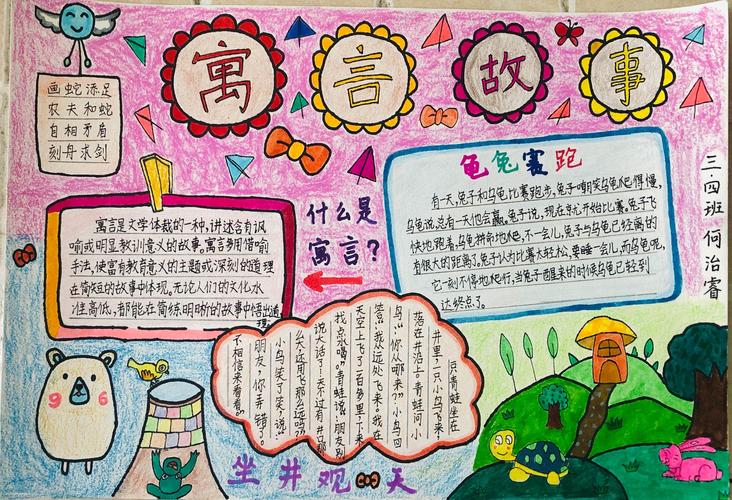 寓言故事
画蛇添足
农夫和蛇
自相矛盾
刻舟求剑
三.四班 何治睿
龟兔赛跑
有一天,兔子和乌龟比赛跑步,兔子嘲笑乌龟爬得慢,
乌龟说,总有一天他会赢。兔子说,现在就开始比赛。兔子飞
快地跑着,乌龟拼命地爬,不一会儿,兔子与乌龟已经离的
有很大的距离了。兔子认为比赛太轻松,要睡一会儿,而乌龟呢,
它一刻不停地爬行,当兔子醒来的时候乌龟已经到
达终点了。
什么是
寓言?
寓言是文学体裁的一种,讲述含有讽
喻或明显教训意义的故事。寓言多用借喻
手法,使富有教育意义的主题或深刻的道理
在简短的故事中体现,无论人们的文化水
准高低,都能在简练明晰的故事中悟出道
理。
一只青蛙坐在
井里,一只小鸟飞来,
落在井沿上。青蛙问小
鸟:"你从哪来?"小鸟回
答:"我从远处飞来。我在
天空上飞了一百多里,下来
找点水喝。"青蛙说:"朋友,别
说大话了!天不过有井口那
么大,还用飞那么远吗?"
小鸟笑了笑,说:"
朋友,你弄错了。
不相信来看看。"
坐井观天
96